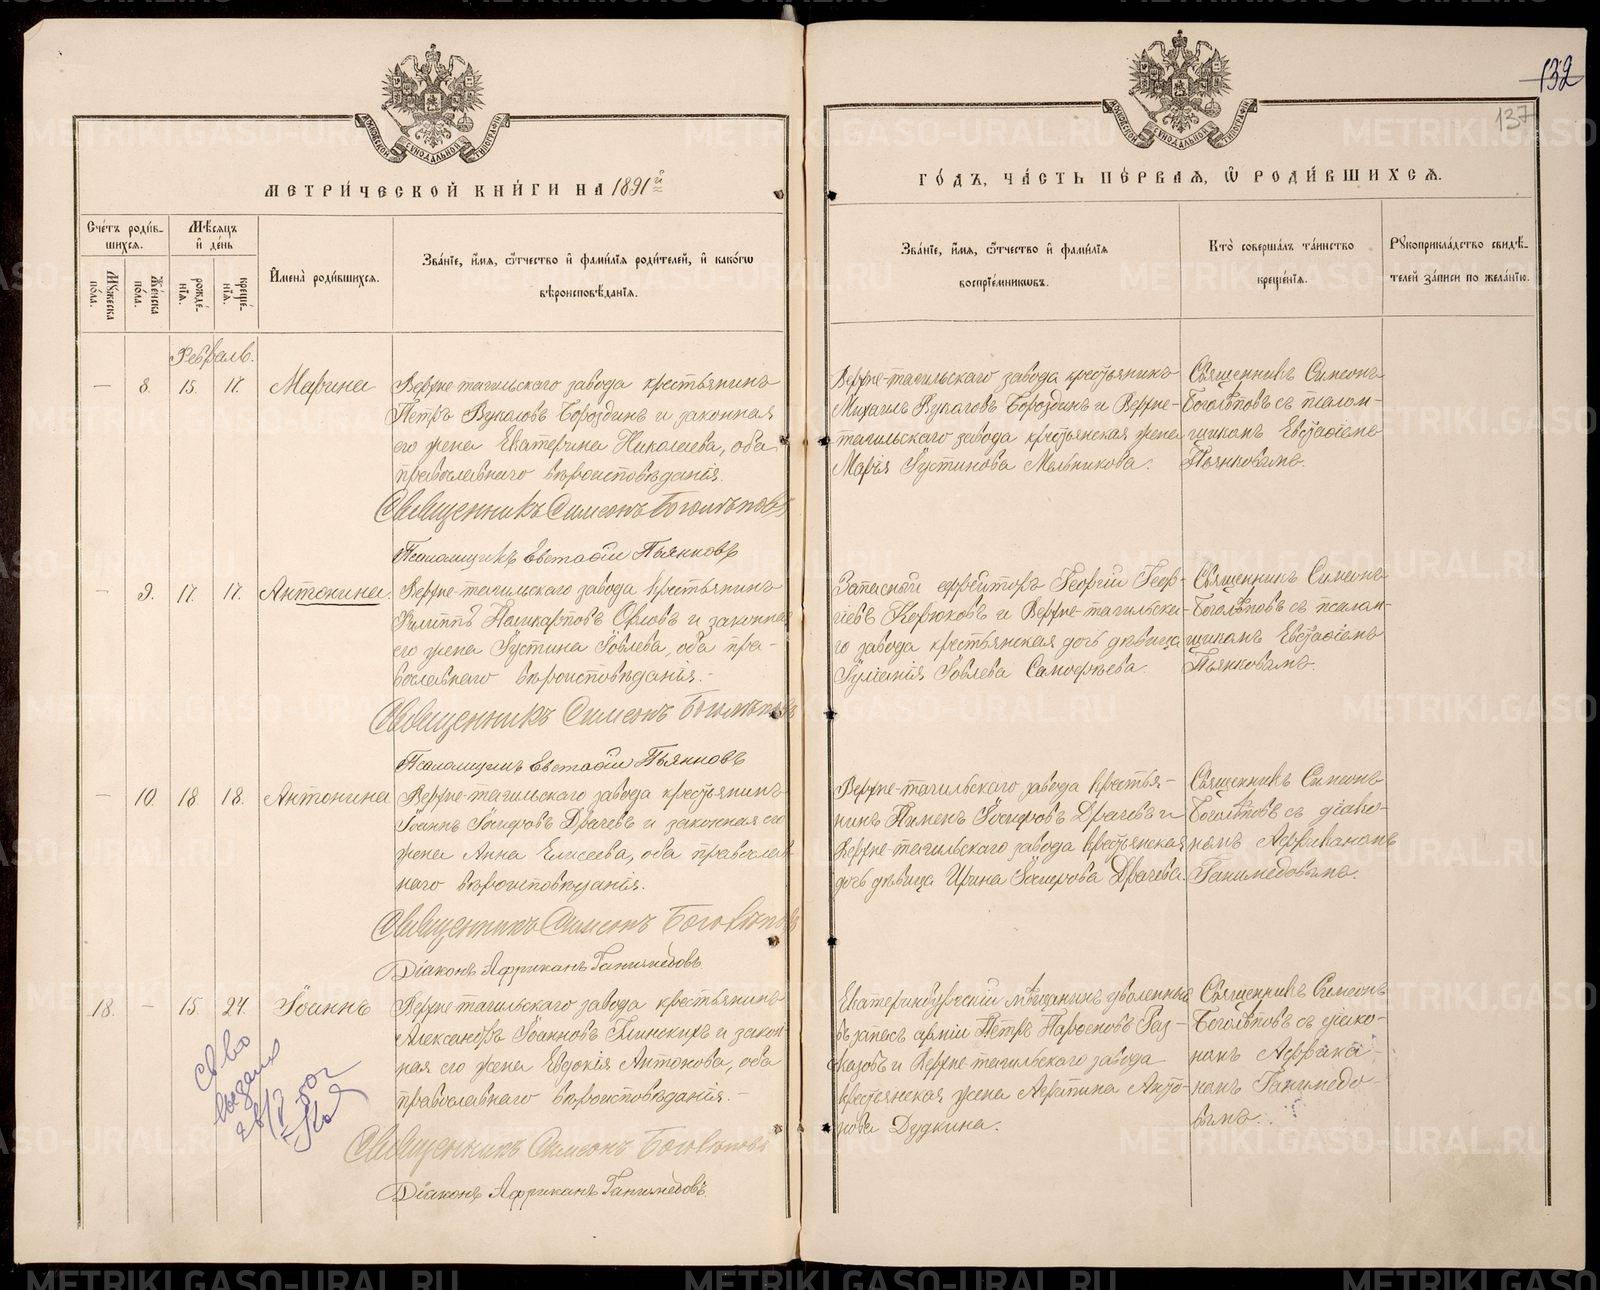 132
137
МЕТРИ́ЧЕСКОЙ КНИ́ГИ НА 1891й
ГО́ДЪ, ЧА́СТЬ ПЕ́РВАЯ, Ѿ РОДИ́ВШИХСЯ.
Сче́тъ роди́в-
шихся.
Мѣ́сяцъ
и҆ де́нь
Мꙋ́жеска
по́ла.
Же́нска
по́ла.
рожде́-
нїя.
креще́-
нїя.
И҆мена̀ роди́вшихся.
Зва́нїе, и҆́мя, ѻ҆́тчество и҆ фами́лїя роди́телей, и҆ како́гѡ
вѣроисповѣ́данїя.
Зва́нїе, и҆́мя, ѻ҆́тчество и҆ фами́лїя
воспрїе́мникѡвъ.
Кто̀ соверша́лъ та́инство
креще́нїя.
Рꙋкоприкла́дство свидѣ́-
телей за́писи по жела́нїю.
Февраль.
— 8. 15. 17. Марина
Верхне-тагильскаго завода крестьянинъ
Петръ Вуколовъ Бороздинъ и законная
его жена Екатерина Николаева, оба
православнаго вѣроисповѣданія.
Священникъ Симеонъ Боголѣповъ
Псаломщикъ Евстафій Пьянковъ
Верхне-тагильскаго завода крестьянинъ
Михаилъ Вуколовъ Бороздинъ и Верхне-
тагильскаго завода крестьянская жена
Марія Іустинова Мельникова.
Священникъ Симеонъ
Боголѣповъ съ псалом-
щикомъ Евстафіемъ
Пьянковымъ.
— 9. 17. 17. Антонина.
Верхне-тагильскаго завода крестьянинъ
Филиппъ Поликарповъ Орловъ и законная
его жена Іустина Іовлева, оба пра-
вославнаго вѣроисповѣданія.-
Священникъ Симеонъ Боголѣповъ
Псаломщикъ Евстафій Пьянковъ
Запасный ефрейторъ Георгій Геор-
гіевъ Корюковъ и Верхне-тагильска-
го завода крестьянская дочь дѣвица
Іуліанія Іовлева Самофѣева.
Священникъ Симеонъ
Боголѣповъ съ псалом-
щикомъ Евстафіемъ
Пьянковымъ.
— 10. 18. 18. Антонина
Верхне-тагильскаго завода крестьянинъ
Іоаннъ Іосифовъ Драчевъ и законная его
жена Анна Елисеева, оба православ-
наго вѣроисповѣданія.
Священникъ Симеонъ Боголѣповъ
Діаконъ Африканъ Ганимедовъ.
Верхне-тагильскаго завода крестья-
нинъ Пименъ Іосифовъ Драчевъ и
Верхне-тагильскаго завода крестьянская
дочь дѣвица Ирина Іосифова Драчева.
Священникъ Симеонъ
Боголѣповъ съ діако-
номъ Африканомъ
Ганимедовымъ.
18. — 15. 24. Іоаннъ
Верхне-тагильскаго завода крестьянинъ
Александръ Іоанновъ Глинскихъ и закон-
ная его жена Евдокія Антонова, оба
православнаго вѣроисповѣданія.-
Священникъ Симеонъ Боголѣповъ
Діаконъ Африканъ Ганимедовъ.
Екатеринбургскій мѣщанинъ уволенный
въ запасъ арміи Петръ Парѳеновъ Раз-
сказовъ и Верхне-тагильскаго завода
крестьянская жена Афитина Анто-
нова Дудкина.
Священникъ Симеонъ
Боголѣповъ съ діако-
номъ Африка-
номъ Ганимедо-
вымъ.